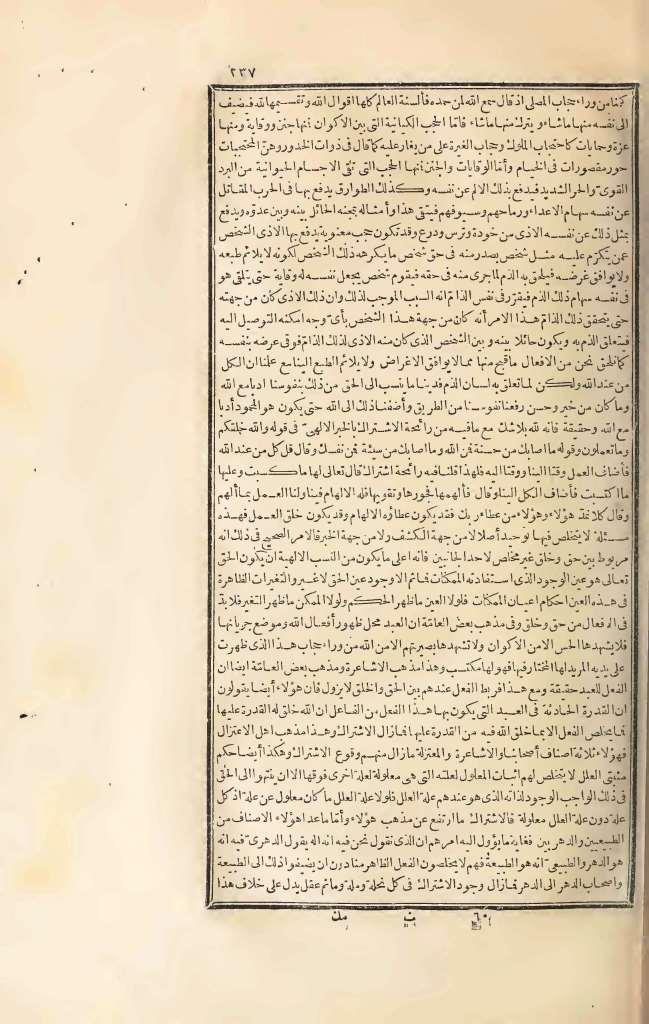 ٢٣٧
كمنا من وراء حجاب المصلى اذ قال سمع الله لمن حمده فألسنة العالم كلها اقوال الله وتقسيمها لله فيضيف
الى نفسه منها ما شاء ويترك منها ما شاء فأما الحجب الكيانية التى بين الاكوان فمنها جنن ووقاية ومنها
عزة وحمايات كاحتجاب الملوك وحجاب الغيرة على من يغار عليه كما قال فى ذوات الخدور وهنّ المحتجبات
حور مقصورات فى الخيام وأما الوقايات والجنن فمنها الحجب التى تقى الاجسام الحيوانية من البرد
القوىّ والحرّ الشديد فيدفع بذلك الالم عن نفسه وكذلك الطوارق يدفع بها فى الحرب المقاتل
عن نفسه سهام الاعداء ورماحهم وسيوفهم فيتقى هذا وأمثاله بمجنه الحائل بينه وبين عدوّه ويدفع
بمثل ذلك عن نفسه الاذى من خودة وترس ودرع وقد تكون حجب معنوية يدفع بها الاذى الشخص
عمن يتكرّم عليه مثل شخص يصدر منه فى حق شخص ما يكرهه ذلك الشخص لكونه لا يلائم طبعه
ولا يوافق غرضه فيلحق به الذم لما جرى منه فى حقه فيقوم شخص يجعل نفسه له وقاية حتى يتلقى هو
فى نفسه سهام ذلك الذم فيقرّر فى نفس الذامّ انه السبب الموجب لذلك وان ذلك الاذى كان من جهته
حتى يتحقق ذلك الذامّ هذا الامر أنه كان من جهة هذا الشخص بأىّ وجه امكنه التوصيل اليه
فيتعلق الذم به ويكون حائلا بينه وبين الشخص الذى كان منه الاذى لذلك الذامّ فوقى عرضه بنفسه
كما نلحق نحن من الافعال ما قبح منها مما لا يوافق الاغراض ولا يلائم الطبع الينا مع علمنا ان الكل
من عند الله ولكن لما تعلق به لسان الذم فدينا ما ينسب الى الحق من ذلك بنفوسنا ادبا مع الله
وما كان من خير وحسن رفعنا نفوسنا من الطريق وأضفنا ذلك الى الله حتى يكون هو المحمود أدبا
مع الله وحقيقة فانه لله بلا شك مع ما فيه من رائحة الاشتراك بالخبر الالهىّ فى قوله والله خلقكم
وما تعملون وقوله ما اصابك من حسنة فمن الله وما اصابك من سيئة فمن نفسك وقال قل كل من عند الله
فأضاف العمل وقتا الينا ووقتا اليه فلهذا قلنا فيه رائحة اشتراك قال تعالى لها ما كسبت وعليها
ما اكتسبت فأضاف الكل الينا وقال فألهمها فجورها وتقويها فله الالهام فينا ولنا العمل بما ألهم
وقال كلا نمدّ هؤلاء وهؤلاء من عطاء ربك فقد يكون عطاؤه الالهام وقد يكون خلق العمل فهذه
مسئلة لا يتخلص فيها توحيد أصلا لا من جهة الكشف ولا من جهة الخبر فالامر الصحيح فى ذلك انه
مربوط بين حق وخلق غير مخلص لاحد الجانبين فانه اعلى ما يكون من النسب الالهية ان يكون الحق
تعالى هو عين الوجود الذى استفادته الممكنات فما ثم الا وجود عين الحق لا غير والتغيرات الظاهرة
فى هذه العين احكام اعيان الممكنات فلولا العين ما ظهر الحكم ولولا الممكن ما ظهر التغير فلا بدّ
فى الافعال من حق وخلق وفى مذهب بعض العامّة ان العبد محل ظهور أفعال الله وموضع جريانها
فلا يشهدها الحس الا من الاكوان ولا تشهدها بصيرتهم الا من الله من وراء حجاب هذا الذى ظهرت
على يديه المريد لها المختار فيها فهو لها مكتسب وهذا مذهب الاشاعرة ومذهب بعض العامّة ايضا ان
الفعل للعبد حقيقة ومع هذا فربط الفعل عندهم بين الحق والخلق لا يزول فان هؤلاء أيضا يقولون
ان القدرة الحادثة فى العبد التى يكون بها هذا الفعل من الفاعل ان الله خلق له القدرة عليها
فما يخلص الفعل الا بما خلق الله فيه من القدرة عليها فما زال الاشتراك وهذا مذهب اهل الاعتزال
فهؤلاء ثلاثة اصناف أصحابنا والاشاعرة والمعتزلة ما زال منهم وقوع الاشتراك وهكذا أيضا حكم
مثبتى العلل لا يتخلص لهم اثبات المعلول لعلته التى هى معلولة لعلة اخرى فوقها الا ان ينتهوا الى الحق
فى ذلك الواجب الوجود لذاته الذى هو عندهم علة العلل فلولا علة العلل ما كان معلول عن علة اذ كل
علة دون علة العلل معلولة فالاشتراك ما ارتفع عن مذهب هؤلاء وأمّا ما عدا هؤلاء الاصناف من
الطبيعيين والدهريين فغاية ما يؤول اليه امرهم ان الذى نقول نحن فيه انه اله يقول الدهرىّ فيه انه
هو الدهر والطبيعىّ انه هو الطبيعة فهم لا يخلصون الفعل الظاهر منا دون ان يضيفوا ذلك الى الطبيعة
واصحاب الدهر الى الدهر فما زال وجود الاشتراك فى كل نحلة وملة وما ثم عقل يدل على خلاف هذا